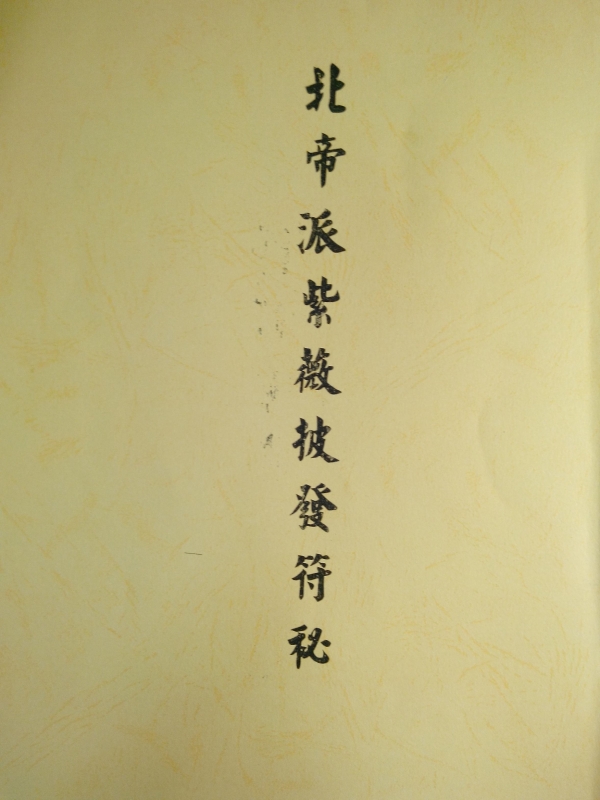 北帝派紫薇披發符秘